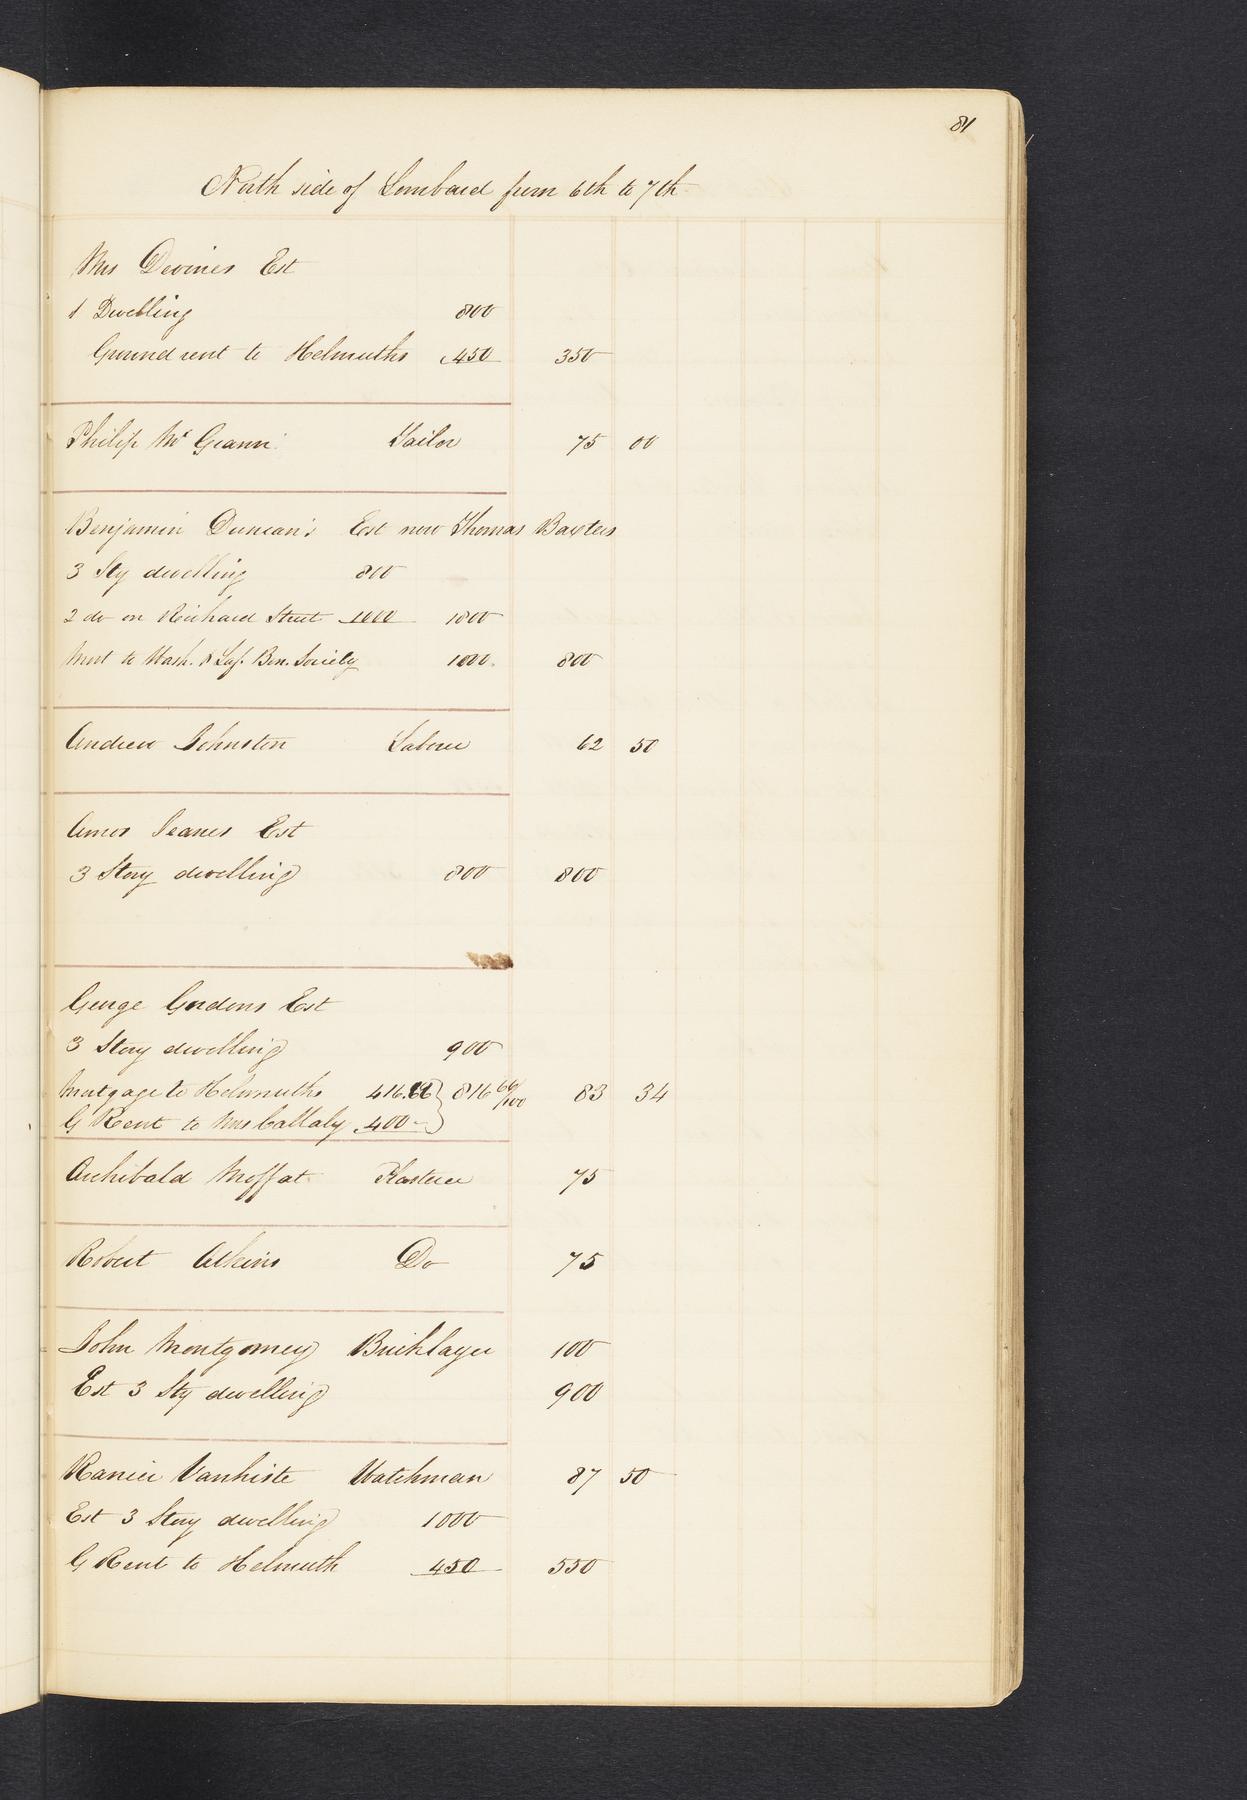 81
North side of Lombard from 6th to 7th
Mrs Devines Est
1 Dwelling 800
Ground rent to Helmuths 450 350
Philip Mc Geann Tailor 75 00
Benjamin Duncan's Est now Thomas Baxters
3 Sty dwelling 800
2 do on Richard Street 1000 1800
Mort to Wash. & Laf. Ben. Society 1000 800
Andrew Johnston Laborer 62 50
Amos Jeanes Est
3 Story dwelling 800 800
George Gordons Est
3 Story dwelling 900
Mortgage to Helmuths 416.66 } 816 66/100 83 34
G Rent to Mrs Callaly 400 -
Archibald Moffat Plasterer 75
Robert Atkins Do 75
John Montgomery Bricklayer 100
Est 3 Sty dwelling 900
Vanhiste Watchman 87 50
Est 3 Story dwelling 1000
G Rent to Helmuth 450 550